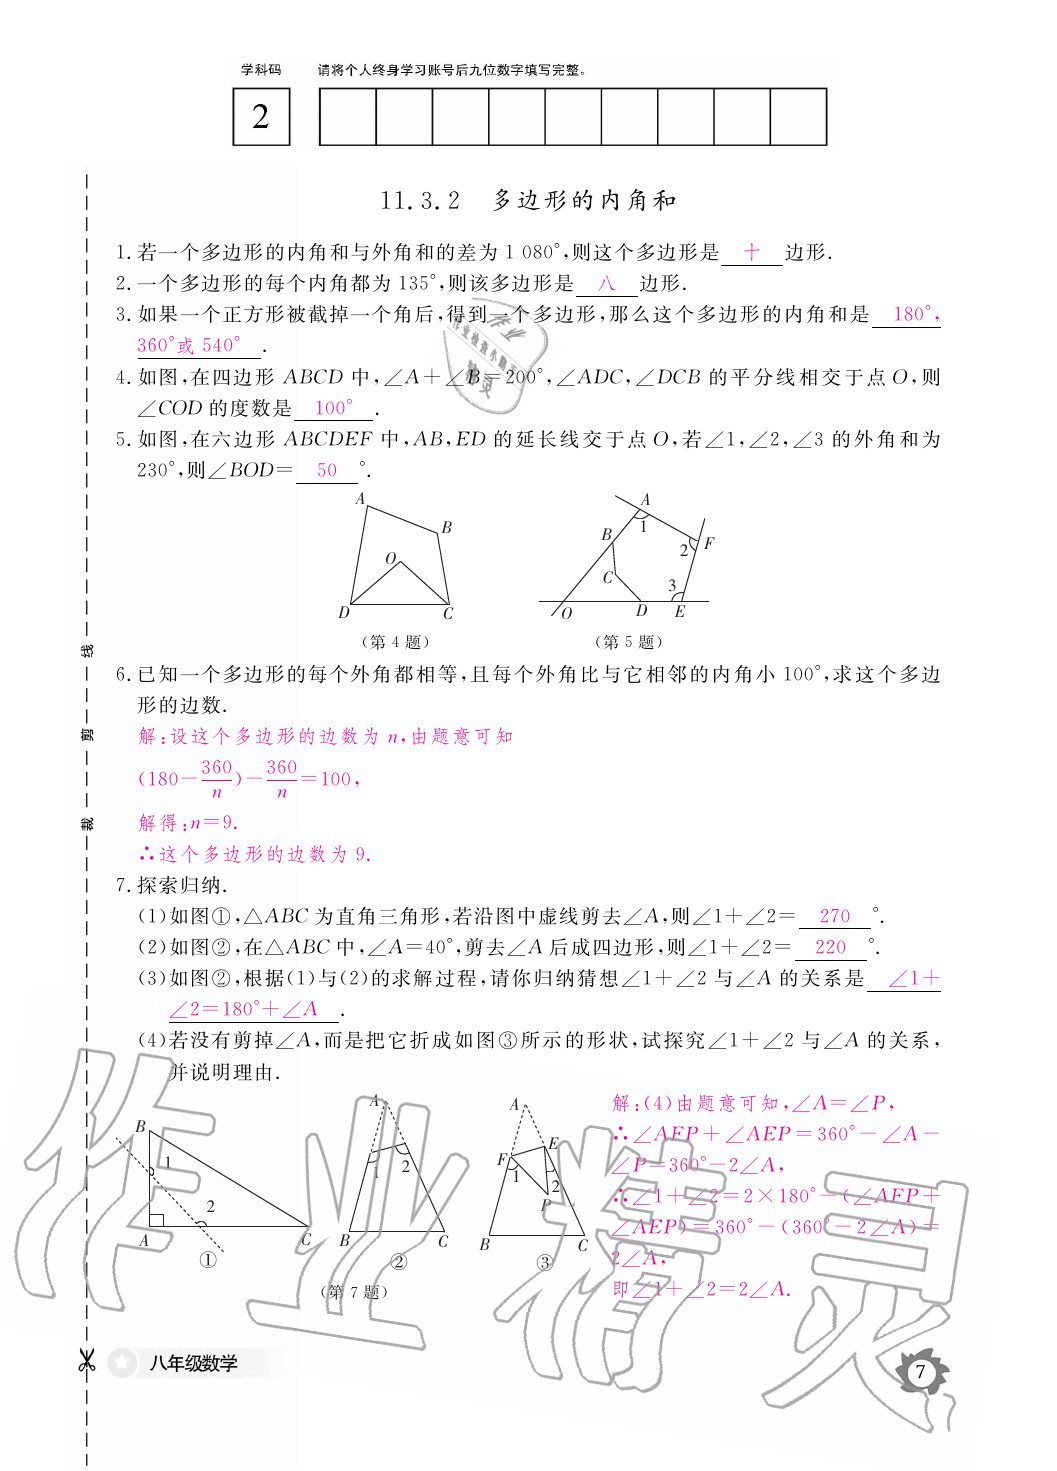 学科码 请将个人终身学习账号后九位数字填写完整。
2
11.3.2 多边形的内角和
1.若一个多边形的内角和与外角和的差为1 080°,则这个多边形是 十 边形.
2.一个多边形的每个内角都为135°,则该多边形是 八 边形.
3.如果一个正方形被截掉一个角后,得到一个多边形,那么这个多边形的内角和是 180°,
360°或 540° .
4.如图,在四边形 ABCD 中,∠A+∠B=200°,∠ADC,∠DCB 的平分线相交于点 O,则
∠COD 的度数是 100° .
5.如图,在六边形 ABCDEF 中,AB,ED 的延长线交于点 O,若∠1,∠2,∠3 的外角和为
230°,则∠BOD= 50 °.
A B O D C
A 1 B 2 F C 3 O D E
(第 4 题) (第 5 题)
6.已知一个多边形的每个外角都相等,且每个外角比与它相邻的内角小 100°,求这个多边
形的边数.
解:设这个多边形的边数为 n,由题意可知
(180-360/n)-360/n=100,
解得:n=9.
∴这个多边形的边数为 9.
7.探索归纳.
(1)如图①,△ABC 为直角三角形,若沿图中虚线剪去∠A,则∠1+∠2= 270 °.
(2)如图②,在△ABC 中,∠A=40°,剪去∠A 后成四边形,则∠1+∠2= 220 °.
(3)如图②,根据(1)与(2)的求解过程,请你归纳猜想∠1+∠2 与∠A 的关系是 ∠1+
∠2=180°+∠A .
(4)若没有剪掉∠A,而是把它折成如图③所示的形状,试探究∠1+∠2 与∠A 的关系,
并说明理由.
B 1 2 A C ①
A 1 2 B C ②
A E F 1 2 P B C ③
(第 7 题)
解:(4)由题意可知,∠A=∠P,
∴∠AFP+∠AEP=360°-∠A-
∠P=360°-2∠A,
∴∠1+∠2=2×180°-(∠AFP+
∠AEP)=360°-(360°-2∠A)=
2∠A,
即∠1+∠2=2∠A.
线
剪
裁
八年级数学
7
作业精灵
作业
作业检查小
精灵